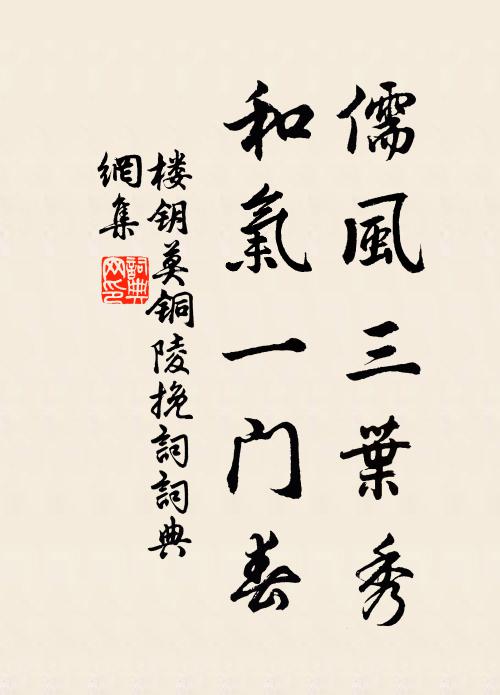 儒風三葉秀
和氣一门春
楼钥莫铜陵挽詞詞典
網集
詞典
网印